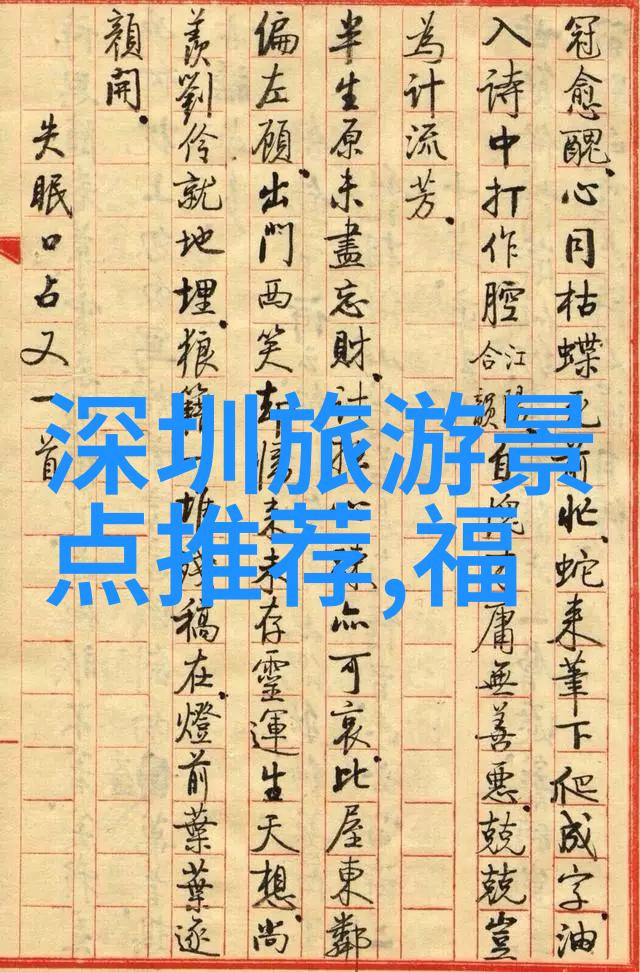 冠愈醜。心同枯蝶无前忙。蛇来筆下爬成字。油
入诗中打作腔江合韻。自庸無善惡。兢兢豈
為计流芳。
半生原未盡忘財。亦可哀。比屋東鄰
偏左顧。出門西笑未存靈運生天想。尚
羨劉伶就地埋。狼籍一堆残稿在。燈前葉葉逐
顏開。
失眠口占又一首
深圳旅游景
点推荐,福